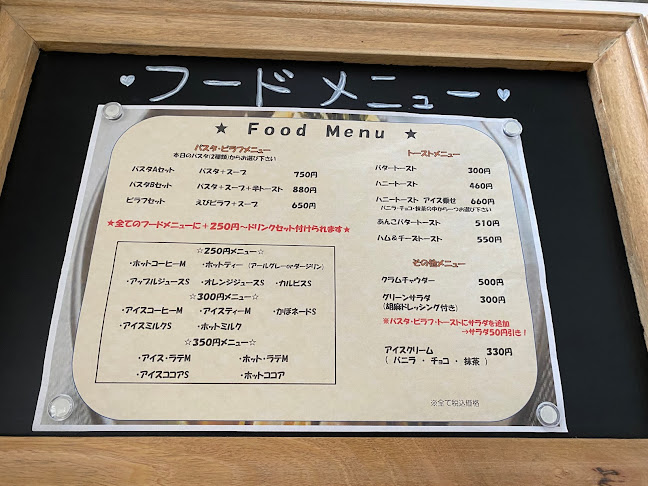 フードメニュー
★ Food Menu ★
パスタ・ピラフメニュー
本日のパスタ(2種類)からお選び下さい
パスタAセット パスタ+スープ 750円
パスタBセット パスタ+スープ+半トースト 880円
ピラフセット えびピラフ+スープ 650円
★全てのフードメニューに+250円~ドリンクセット付けられます★
☆250円メニュー☆
・ホットコーヒーM ・ホットティー (アールグレーorダージリン)
・アップルジュースS ・オレンジジュースS ・カルピスS
☆300円メニュー☆
・アイスコーヒーM ・アイスティーM ・かぼネードS
・アイスミルクS ・ホットミルク
☆350円メニュー☆
・アイス・ラテM ・ホット・ラテM
・アイスココアS ・ホットココア
トーストメニュー
バタートースト 300円
ハニートースト 460円
ハニートースト アイス乗せ 660円
バニラ・チョコ・抹茶の中から一つお選び下さい
あんこバタートースト 510円
ハム&チーズトースト 550円
その他メニュー
クラムチャウダー 500円
グリーンサラダ 300円
(胡麻ドレッシング付き)
※パスタ・ピラフ・トーストにサラダを追加
→サラダ50円引き!
アイスクリーム 330円
( バニラ ・ チョコ ・ 抹茶 )
※全て税込価格